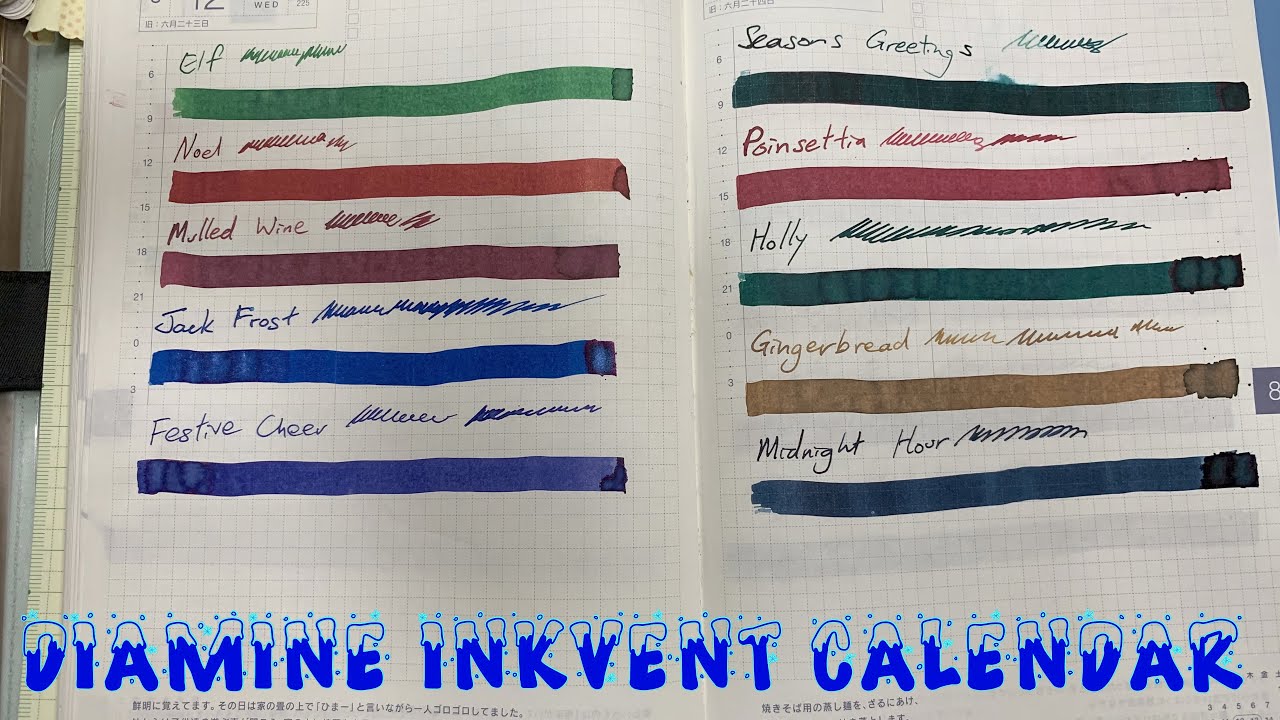 12
WED
225
旧:六月二十三日
Elf
6
9
Noel
12
15
Mulled Wine
18
21
Jack Frost
0
3
Festive Cheer
旧:六月二十四日
Seasons Greetings
6
9
Poinsettia
12
15
Holly
18
21
Gingerbread
0
3
8
Midnight Hour
DIAMINE INKVENT CALENDAR
鮮明に覚えてます。その日は家の畳の上で「ひまー」と言いながら一人ゴロゴロしてました。
焼きそば用の蒸し麺を、ざるにあけ、
木 金 土
3 4 5 6 7